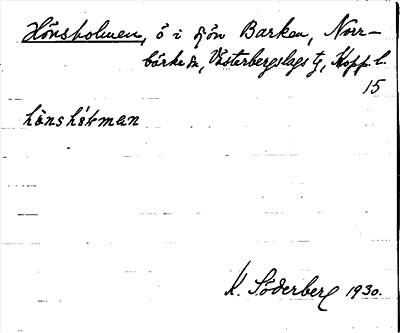 Hönsholmen, ö i sjön Barken, Norr-
bärke sn, Västerbergslags tg, Kopp. l.
15
hönshòlman
K. Söderberg 1930.